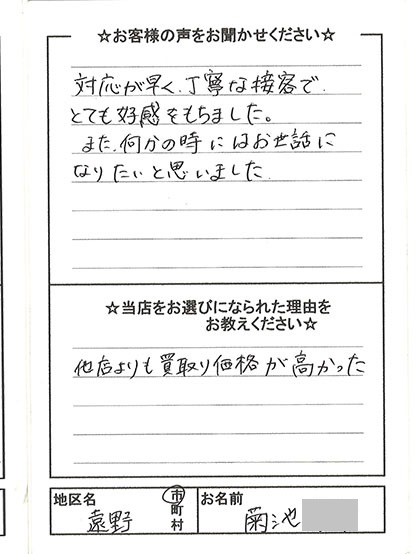 ☆お客様の声をお聞かせください☆
対応が早く、丁寧な接客で、
とても好感をもちました。
また、何かの時にはお世話に
なりたいと思いました
☆当店をお選びになられた理由を
お教えください☆
他店よりも買取り価格が高かった
地区名 市 お名前
遠野 町 菊池
村